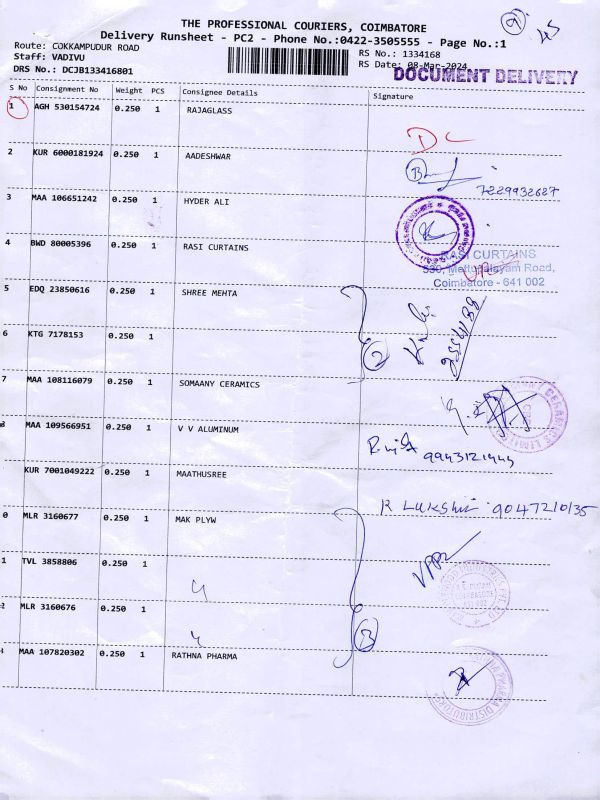 THE PROFESSIONAL COURIERS, COIMBATORE
Delivery Runsheet - PC2 - Phone No.:0422-3505555 - Page No.:1
Route: COKKAMPUDUR ROAD
RS No.: 1334168
Staff: VADIVU
RS Date: 08-Mar-2024
DRS No.: DCJB133416801
DOCUMENT DELIVERY
S No Consignment No Weight PCS Consignee Details Signature
1 AGH 530154724 0.250 1 RAJAGLASS
DC
2 KUR 6000181924 0.250 1 AADESHWAR
7229932627
3 MAA 106651242 0.250 1 HYDER ALI
4 BWD 80005396 0.250 1 RASI CURTAINS
RASI CURTAINS
530, Mettupalayam Road,
Coimbatore - 641 002
5 EDQ 23850616 0.250 1 SHREE MEHTA
6 KTG 7178153 0.250 1
2
7 MAA 108116079 0.250 1 SOMAANY CERAMICS
8 MAA 109566951 0.250 1 V V ALUMINUM
KUR 7001049222 0.250 1 MAATHUSREE
R Lukshmi 9047210135
0 MLR 3160677 0.250 1 MAK PLYW
1 TVL 3858806 0.250 1
2 MLR 3160676 0.250 1
3
MAA 107820302 0.250 1 RATHNA PHARMA